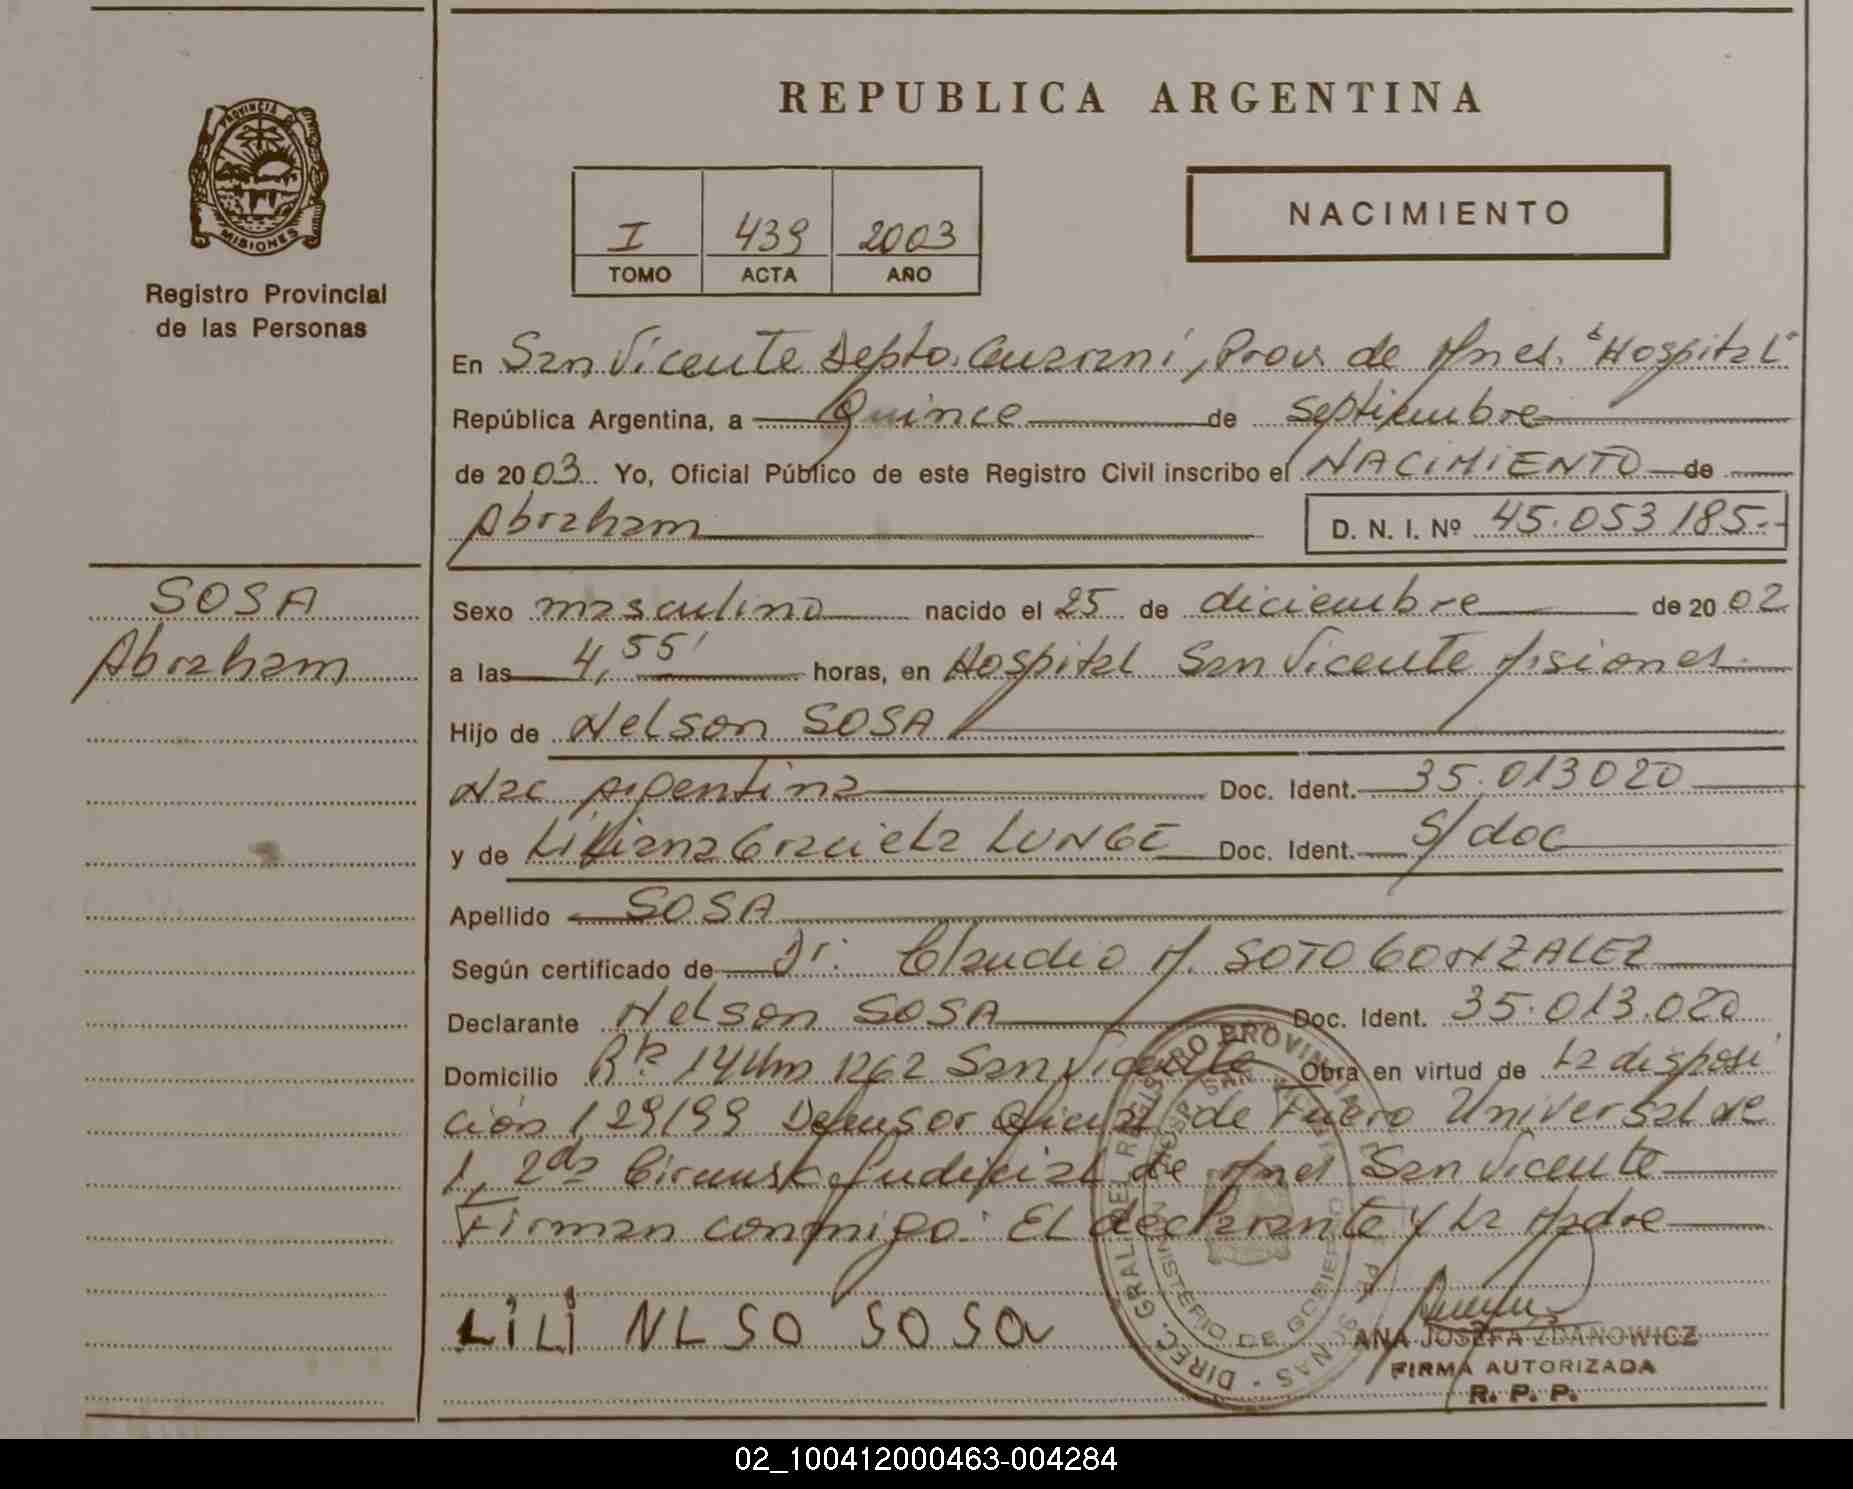 PROVINCIA DE
MISIONES
Registro Provincial
de las Personas
SOSA
Abraham
REPUBLICA ARGENTINA
I 439 2003
TOMO ACTA AÑO
NACIMIENTO
En San Vicente Depto. Guaraní, Prov. de Mnes. "Hospital"
República Argentina, a Quince de septiembre
de 2003 Yo, Oficial Público de este Registro Civil inscribo el NACIMIENTO de
Abraham D. N. I. Nº 45.053.185.-
Sexo masculino nacido el 25 de diciembre de 2002
a las 4,55' horas, en Hospital San Vicente Misiones.
Hijo de Nelson SOSA
Nac Argentina Doc. Ident. 35.013020
y de Liliana Graciela LUNGE Doc. Ident. S/doc
Apellido SOSA
Según certificado de Dr. Claudio M. SOTO GONZALEZ
Declarante Nelson SOSA Doc. Ident. 35.013.020
Domicilio Rta 14 Km 1262 San Vicente Obra en virtud de la disposi
ción 129/99 Defensor Oficial de Fuero Universal de
1, 2da Circunsk Judicial de Mnes San Vicente
Firman conmigo: El declarante y La Madre
LiLi NLSO SOSa
DIREC. GRAL. DEL REGISTRO PROVINCIAL DE PERSONAS
MINISTERIO DE GOBIERNO
ANA JOSEFA ZDANOWICZ
FIRMA AUTORIZADA
R. P. P.
02_100412000463-004284